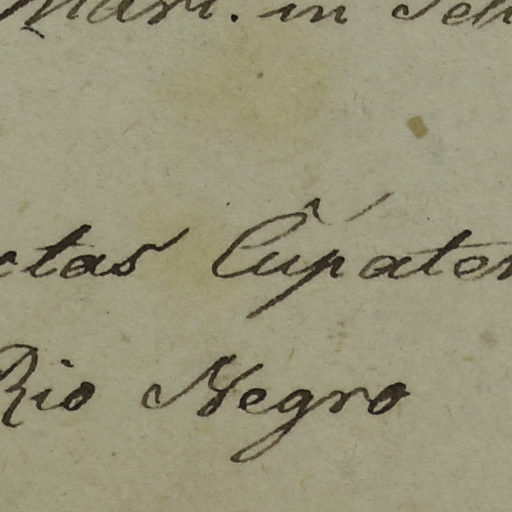 Mart. in
ctas Cupater
Rio Negro